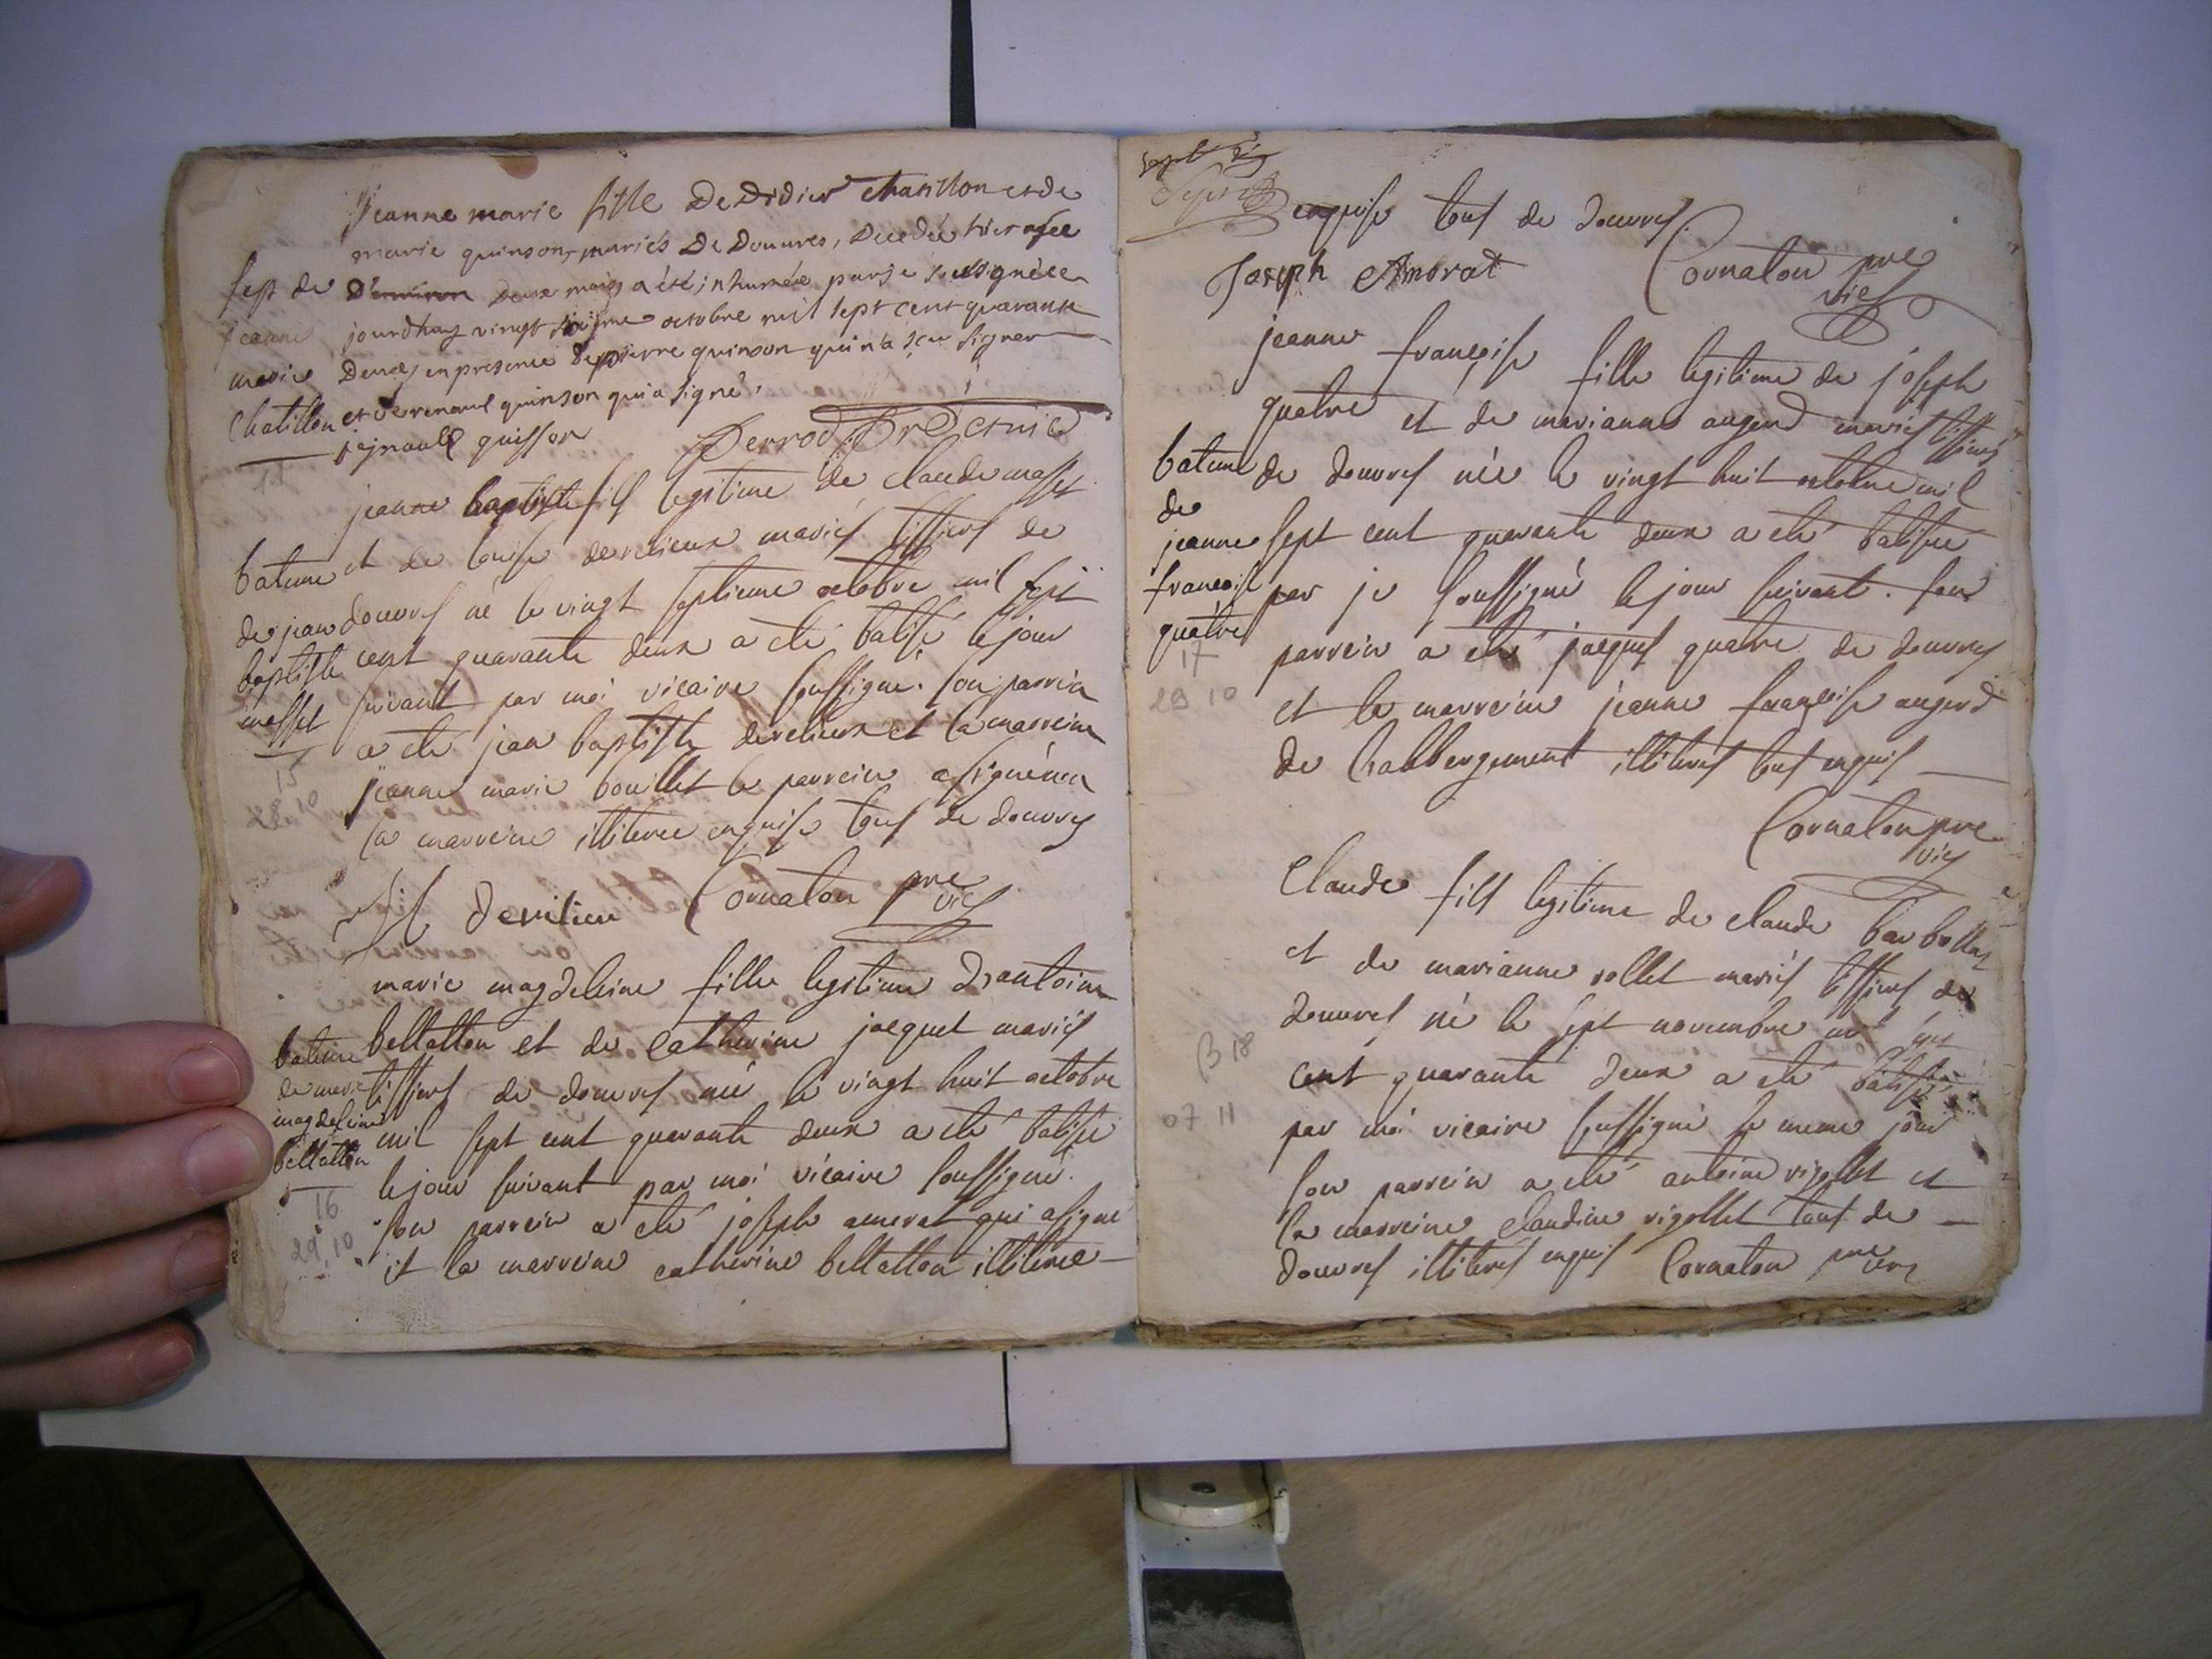 jeanne marie fille De Didier chatillon et de
marie quinson, mariés De Douures, Decedée hier agée
sept de
jeanne
marie
chatillon
D'environ Deux mois a été inhumée par je soussigné ce
jourdhuy vingt octobre mil sept cent quarante
Deux, en presence De pierre quinson qui n'a sçu signer
et De renaud quinson qui a signé.
quisson
Perrod
jeanne baptiste fils legitime de claude masset
bateme
de jean
baptiste
masset
15
28 10
et de louise derelieux mariés tissiers de
douvres né le vingt septieme octobre mil sept
cent quarante deux a eté batisé le jour
suivant par moi vicaire soussigné. son parrein
a eté jean baptiste derelieux et la marreine
jeanne marie bouillet le parrein a signé
la marreine illiteree enquise tous de douvres
Cornaton pre
vic
marie magdeleine fille legitime d'antoine
bateme
de marie
magdeleine
bellatton
16
29 10
bellatton et de catherine jacquet mariés
tissiers de douvres née le vingt huit octobre
mil sept cent quarante deux a eté batisée
le jour suivant par moi vicaire soussigné.
son parrein a eté joseph amerat qui a signé
et la marreine catherine bellatton illiteree
enquise tous de douvres
Joseph Amorat
Cornaton pre
vic
jeanne françoise fille legitime de joseph
quatre et de marianne augerd mariés tissiers
bateme
de
jeanne
françoise
quatre
17
29 10
de douvres née le vingt huit octobre mil
sept cent quarante deux a eté batisée
par je soussigné le jour suivant. son
parrein a eté jacques quatre de douvres
et la marreine jeanne françoise augerd
de l'abbergement illiterés tous enquis
Cornaton pre
vic
Claude fils legitime de claude
et de marianne rollet mariés tissiers de
B 18
07 11
douvres né le sept novembre mil sept
cent quarante deux a eté batisé
par moi vicaire soussigné le meme jour
son parrein a eté antoine rigollet et
la marreine claudine rigollet tous de
douvres illiterés enquis Cornaton pre vic